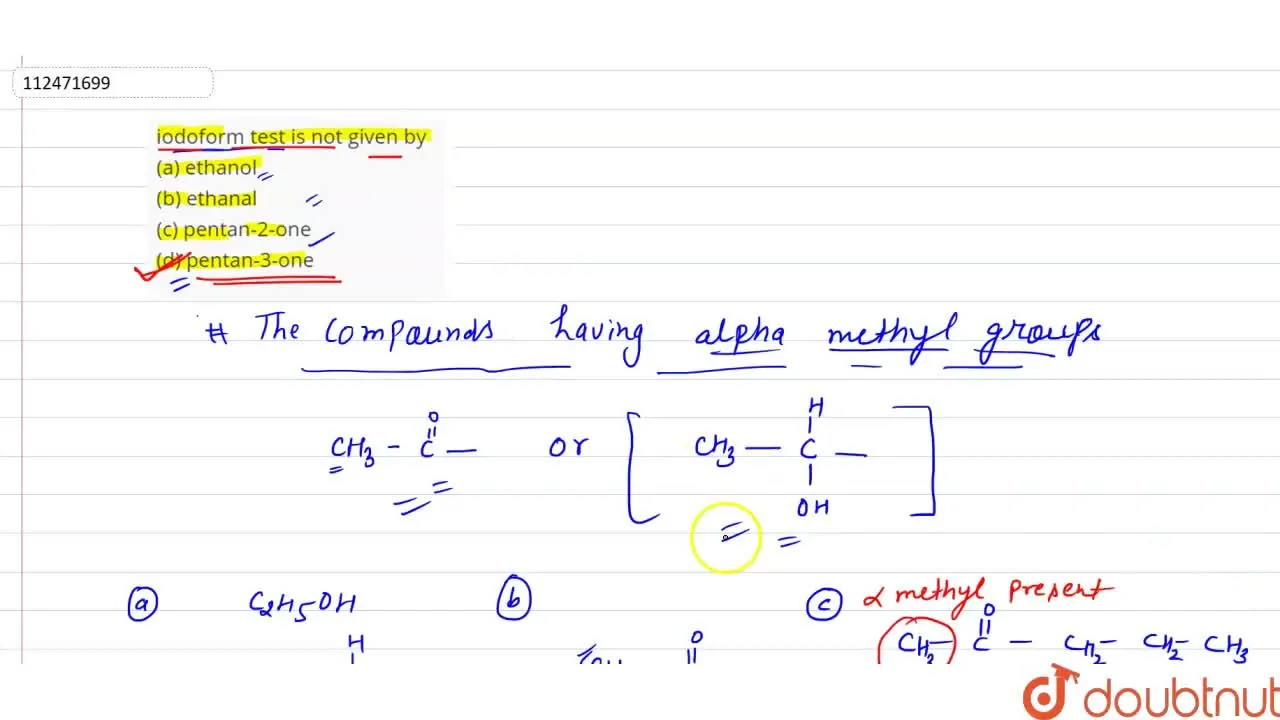 112471699
iodoform test is not given by
(a) ethanol
(b) ethanal
(c) pentan-2-one
(d) pentan-3-one
# The compounds having alpha methyl groups
O H
CH3 - C - or [ CH3 - C - ]
OH
(a) C2H5OH (b) (c) α methyl present
H O O
CH3 - C - CH2 - CH2 - CH3
doubtnut